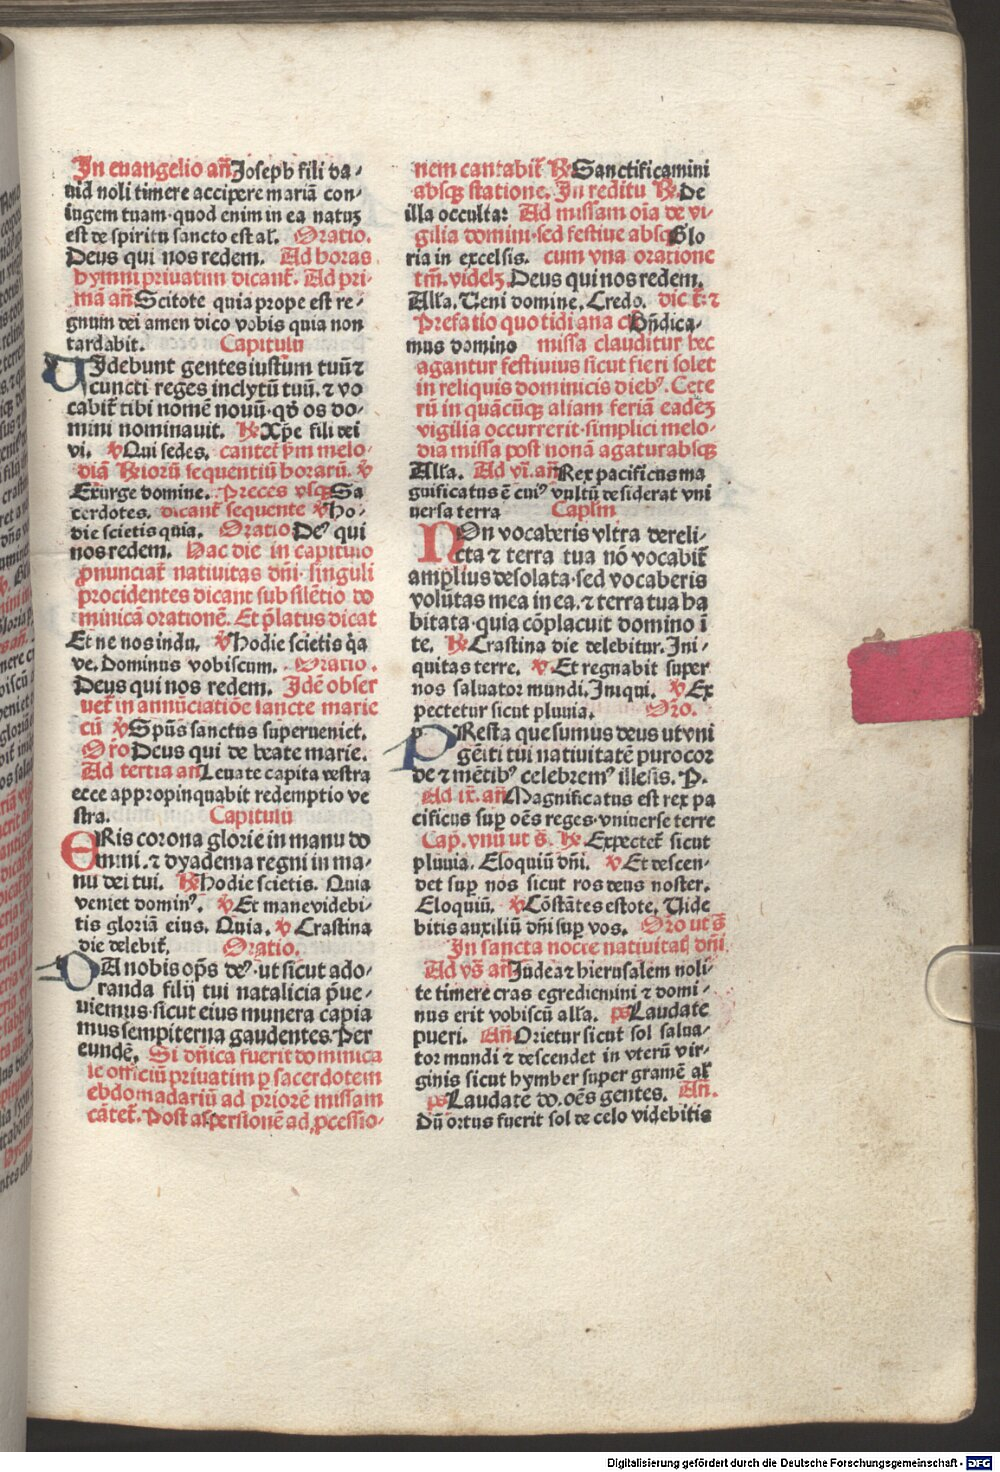 In euangelio an̄ Joseph fili da-
uid noli timere accipere mariā con-
iugem tuam·quod enim in ea natuʒ
est de spiritu sancto est al̄. Oratio.
Deus qui nos redem. Ad horas
hymni priuatim dicant̄. Ad pri-
mā an̄ Scitote quia prope est re-
gnum dei amen dico vobis quia non
tardabit. Capitulū
VIdebunt gentes iustum tuū ⁊
cuncti reges inclytū tuū. ⁊ vo
cabit̄ tibi nomē nouū·qđ os do-
mini nominauit. ℟ Xp̄e fili dei
vi. ℣ Qui sedes. cantet̄ ẜm melo-
diā ℟iorū sequentiū horarū. ℣
Exurge domine. Preces vsqꝫ Sa
cerdotes. dicant̄ sequente ℣ ho-
die scietis quia. Oratio Deꝰ qui
nos redem. Hac die in capitulo
ꝓnunciat̄ natiuitas dn̄i·singuli
procidentes dicant sub silētio do
minicā orationē. Et p̄latus dicat
Et ne nos indu. ℣ hodie scietis q̄a
ve. Dominus vobiscum. Oratio.
Deus qui nos redem. Idē obser
uet̄ in annūciatiōe sancte marie
cū ℣ Spūs sanctus superueniet.
Or̄o Deus qui de beate marie.
Ad tertia an̄ Leuate capita vestra
ecce appropinquabit redemptio ve
stra. Capitulū
ERis corona glorie in manu do
mini. ⁊ dyadema regni in ma-
nu dei tui. ℟ hodie scietis. Quia
veniet dominꝰ. ℣ Et mane videbi-
tis gloriā eius. Quia. ℣ Crastina
die delebit̄. Oratio.
DA nobis op̄s deꝰ·ut sicut ado-
randa filij tui natalicia p̄ue-
uiemus·sicut eius munera capia
mus sempiterna gaudentes. Per
eundē. Si dn̄ica fuerit dominica
le officiū priuatim ꝑ sacerdotem
ebdomadariū ad priorē missam
cātet̄. Post aspersionē ad ꝓcessio-
nem cantabit̄ ℟ Sanctificamini
absqꝫ statione. In reditu ℟ De
illa occulta: Ad missam oīa de vi-
gilia domini·sed festiue absqꝫ Glo
ria in excelsis. cum vna oratione
tm̄. videlʒ Deus qui nos redem.
Alla. Veni domine. Credo. dic̄t̄: ⁊
Prefatio quotidiana c̄ Bn̄dica-
mus domino missa clauditur hec
agantur festiuius sicut fieri solet
in reliquis dominicis diebꝰ. Cete
rū in quācūqꝫ aliam feriā eadeʒ
vigilia occurrerit·simplici melo-
dia missa post nonā agatur absqꝫ
Alla. Ad vi. an̄ Rex pacificus ma
gnificatus ē cuiꝰ vultū desiderat vni
uersa terra Caplm
NOn vocaberis vltra dereli-
cta ⁊ terra tua nō vocabit̄
amplius desolata·sed vocaberis
volūtas mea in ea. ⁊ terra tua ha
bitata·quia cōplacuit domino ī
te. ℟ Crastina die delebitur. Ini-
quitas terre. ℣ Et regnabit super
nos saluator mundi. Iniqui. ℣ Ex
pectetur sicut pluuia. Or̄o.
PResta quesumus deus ut vni
gēiti tui natiuitatē puro cor
de ⁊ mētibꝰ celebremꝰ illesis. P.
Ad ix. an̄ Magnificatus est rex pa
cificus suꝑ oēs reges·vniuerse terre
Cap. vnū ut s̄. ℟ Expectet̄ sicut
pluuia. Eloquiū dn̄i. ℣ Et descen-
det suꝑ nos sicut ros deus noster.
Eloquiū. ℣ Cōstātes estote. Vide
bitis auxiliū dn̄i suꝑ vos. Or̄o ut s̄
In sancta nocte natiuitat̄ dn̄i
Ad vs̄ an̄ Judea ⁊ hierusalem noli-
te timere cras egrediemini ⁊ domi-
nus erit vobiscū alla. ps Laudate
pueri. An̄ Orietur sicut sol salua-
tor mundi ⁊ descendet in vterū vir-
ginis sicut hymber super gramē al̄
ps Laudate do. oēs gentes. An̄.
Dū ortus fuerit sol de celo videbitis
Digitalisierung gefördert durch die Deutsche Forschungsgemeinschaft - DFG